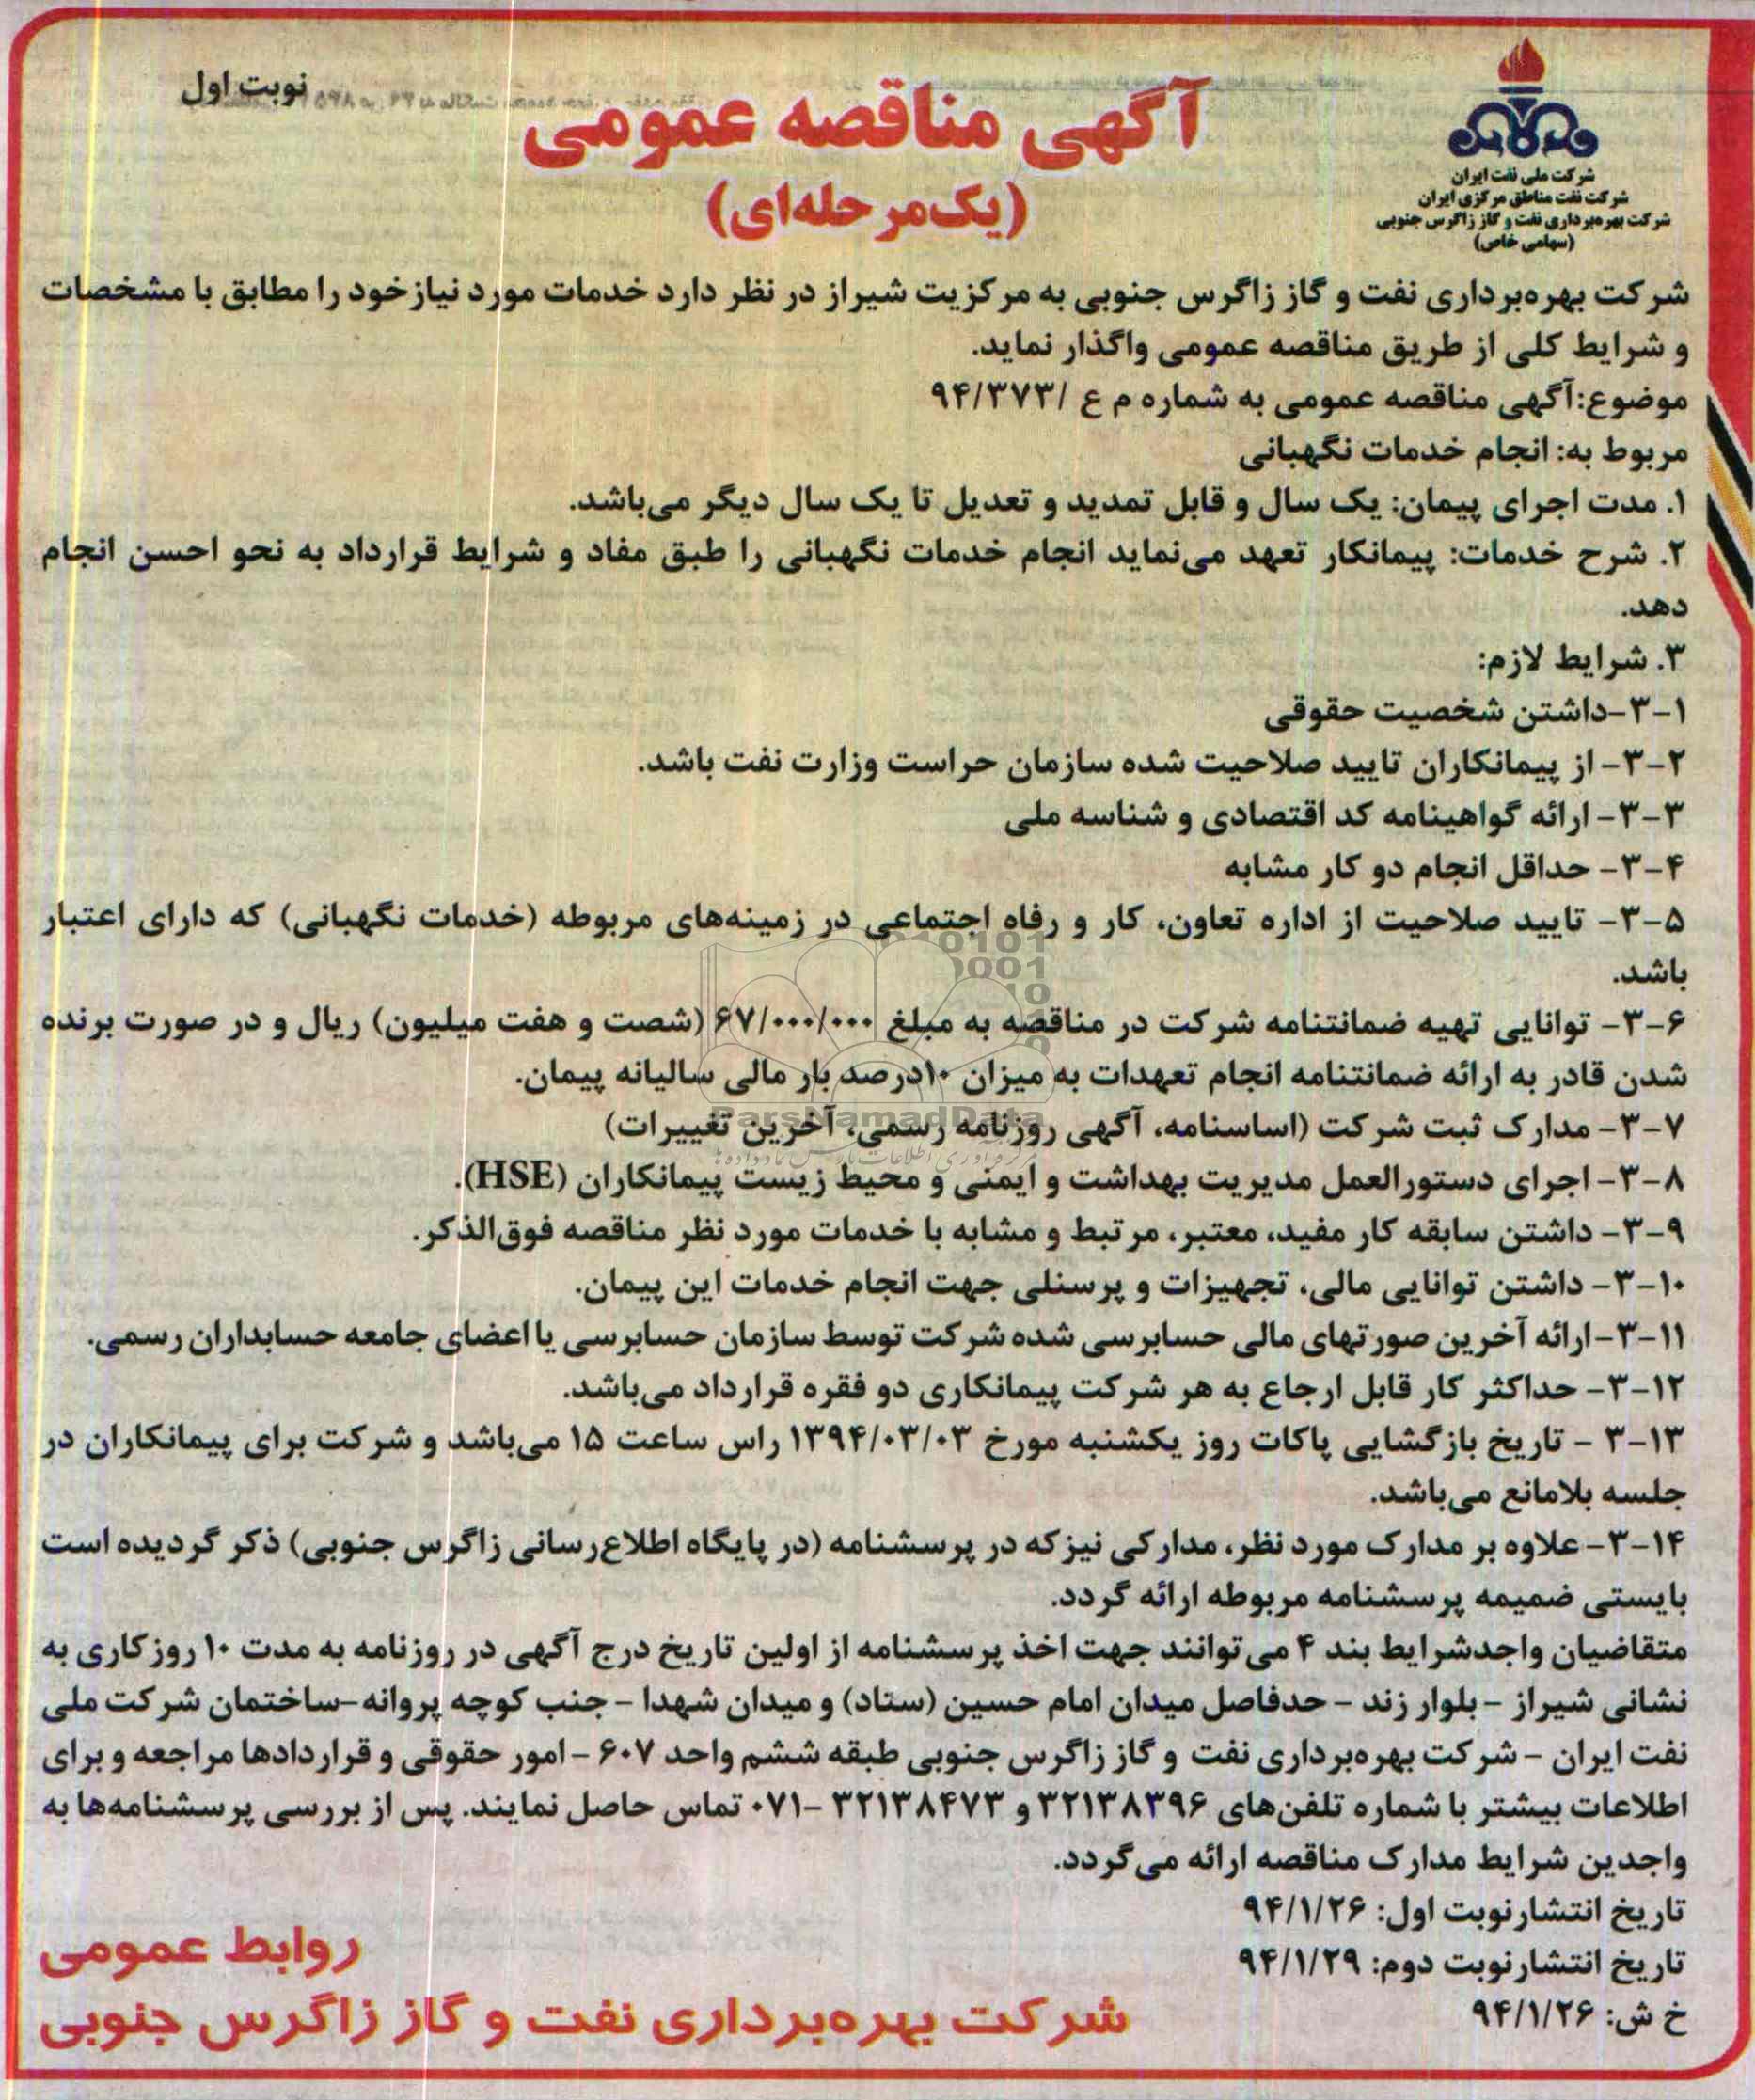 نوبت اول
آگهی مناقصه عمومی
(یک‌مرحله‌ای)
شرکت ملی نفت ایران
شرکت نفت مناطق مرکزی ایران
شرکت بهره‌برداری نفت و گاز زاگرس جنوبی
(سهامی خاص)
شرکت بهره‌برداری نفت و گاز زاگرس جنوبی به مرکزیت شیراز در نظر دارد خدمات مورد نیاز خود را مطابق با مشخصات
و شرایط کلی از طریق مناقصه عمومی واگذار نماید.
موضوع:آگهی مناقصه عمومی به شماره م ع /۹۴/۳۷۳
مربوط به: انجام خدمات نگهبانی
۱. مدت اجرای پیمان: یک سال و قابل تمدید و تعدیل تا یک سال دیگر می‌باشد.
۲. شرح خدمات: پیمانکار تعهد می‌نماید انجام خدمات نگهبانی را طبق مفاد و شرایط قرارداد به نحو احسن انجام
دهد.
۳. شرایط لازم:
۳-۱-داشتن شخصیت حقوقی
۳-۲- از پیمانکاران تایید صلاحیت شده سازمان حراست وزارت نفت باشد.
۳-۳- ارائه گواهینامه کد اقتصادی و شناسه ملی
۳-۴- حداقل انجام دو کار مشابه
۳-۵- تایید صلاحیت از اداره تعاون، کار و رفاه اجتماعی در زمینه‌های مربوطه (خدمات نگهبانی) که دارای اعتبار
باشد.
۳-۶- توانایی تهیه ضمانتنامه شرکت در مناقصه به مبلغ ۶۷/۰۰۰/۰۰۰ (شصت و هفت میلیون) ریال و در صورت برنده
شدن قادر به ارائه ضمانتنامه انجام تعهدات به میزان ۱۰درصد بار مالی سالیانه پیمان.
ParsNamadData
۳-۷- مدارک ثبت شرکت (اساسنامه، آگهی روزنامه رسمی، آخرین تغییرات)
۳-۸- اجرای دستورالعمل مدیریت بهداشت و ایمنی و محیط زیست پیمانکاران (HSE).
۳-۹- داشتن سابقه کار مفید، معتبر، مرتبط و مشابه با خدمات مورد نظر مناقصه فوق‌الذکر.
۳-۱۰- داشتن توانایی مالی، تجهیزات و پرسنلی جهت انجام خدمات این پیمان.
۳-۱۱-ارائه آخرین صورتهای مالی حسابرسی شده شرکت توسط سازمان حسابرسی یا اعضای جامعه حسابداران رسمی.
۳-۱۲- حداکثر کار قابل ارجاع به هر شرکت پیمانکاری دو فقره قرارداد می‌باشد.
۳-۱۳ - تاریخ بازگشایی پاکات روز یکشنبه مورخ ۱۳۹۴/۰۳/۰۳ راس ساعت ۱۵ می‌باشد و شرکت برای پیمانکاران در
جلسه بلامانع می‌باشد.
۳-۱۴- علاوه بر مدارک مورد نظر، مدارکی نیز که در پرسشنامه (در پایگاه اطلاع‌رسانی زاگرس جنوبی) ذکر گردیده است
بایستی ضمیمه پرسشنامه مربوطه ارائه گردد.
متقاضیان واجدشرایط بند ۴ می‌توانند جهت اخذ پرسشنامه از اولین تاریخ درج آگهی در روزنامه به مدت ۱۰ روز کاری به
نشانی شیراز - بلوار زند - حدفاصل میدان امام حسین (ستاد) و میدان شهدا - جنب کوچه پروانه -ساختمان شرکت ملی
نفت ایران - شرکت بهره‌برداری نفت و گاز زاگرس جنوبی طبقه ششم واحد ۶۰۷ - امور حقوقی و قراردادها مراجعه و برای
اطلاعات بیشتر با شماره تلفن‌های ۳۲۱۳۸۳۹۶ و ۳۲۱۳۸۴۷۳ -۰۷۱ تماس حاصل نمایند. پس از بررسی پرسشنامه‌ها به
واجدین شرایط مدارک مناقصه ارائه می‌گردد.
تاریخ انتشارنوبت اول: ۹۴/۱/۲۶
تاریخ انتشارنوبت دوم: ۹۴/۱/۲۹
خ ش: ۹۴/۱/۲۶
روابط عمومی
شرکت بهره‌برداری نفت و گاز زاگرس جنوبی